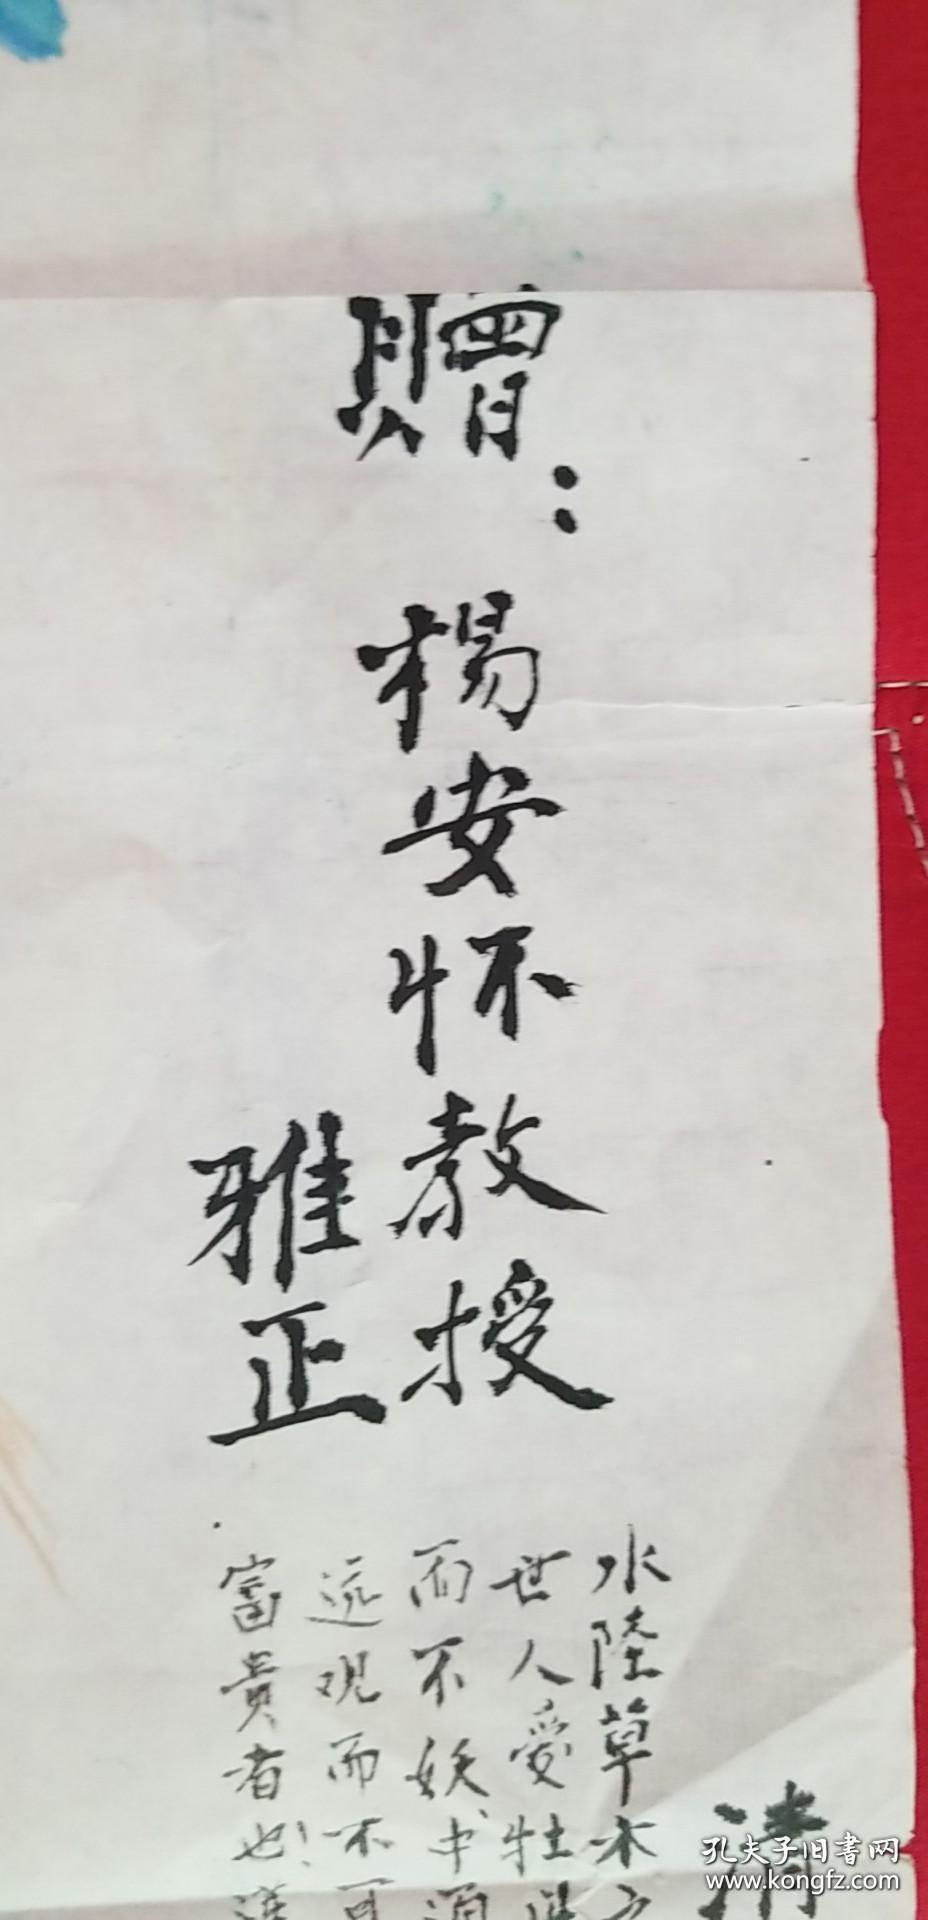 贈：
楊安怀教授
雅正
清
水陸草木
世人爱牡
而不妖、中
远观而不可
富貴者也！
孔夫子旧书网
www.kongfz.com